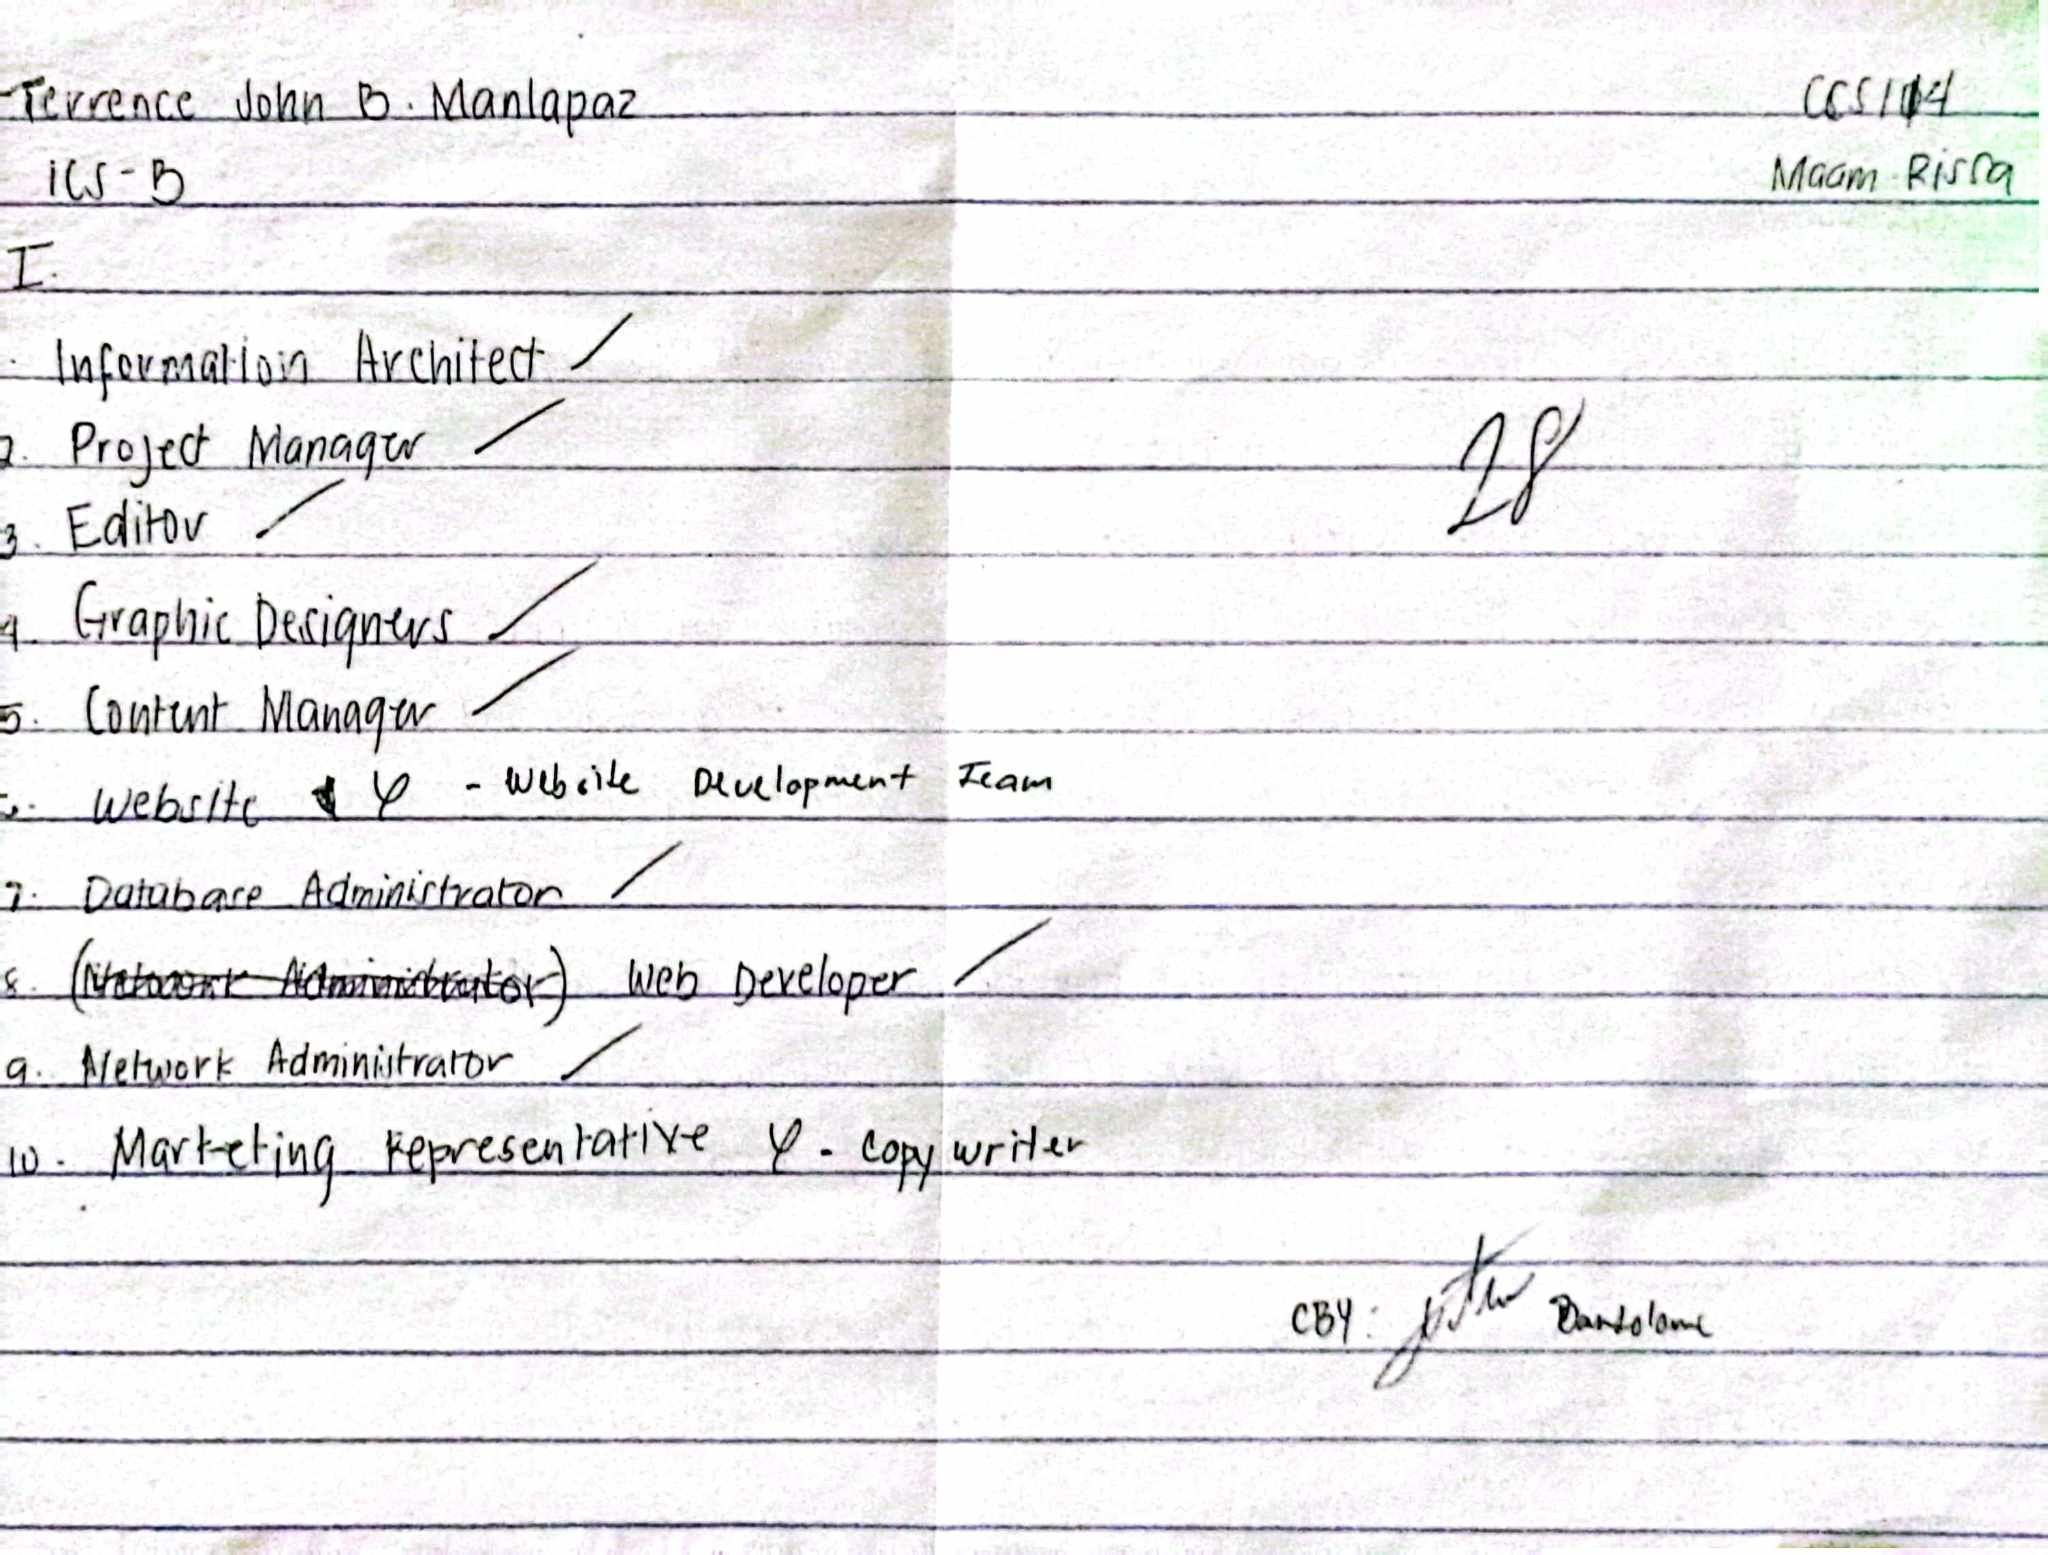 Terrence John B. Manlapaz CCS104
1CS-B Maam Rissa
I.
. Information Architect /
2. Project Manager /
28
3. Editor /
4. Graphic Designers /
5. Content Manager /
6. Website - Website Development Team
7. Database Administrator /
8. (Network Administrator) Web Developer /
9. Network Administrator /
10. Marketing Representative - Copywriter
CBY: Bartolome